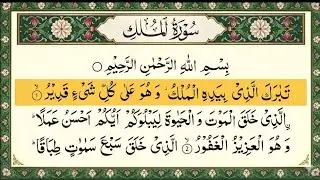 سُورَةُ الْمُلْكِ
بِسْمِ اللّٰهِ الرَّحْمٰنِ الرَّحِيْمِ ○
تَبٰرَكَ الَّذِىْ بِيَدِهِ الْمُلْكُ وَهُوَ عَلٰى كُلِّ شَىْءٍ قَدِيْرُ ۙ ۝۱
الَّذِىْ خَلَقَ الْمَوْتَ وَ الْحَيٰوةَ لِيَبْلُوَكُمْ اَيُّكُمْ اَحْسَنُ عَمَلًا ؕ
وَ هُوَ الْعَزِيْزُ الْغَفُوْرُ ۙ ۝۲ الَّذِىْ خَلَقَ سَبْعَ سَمٰوٰتٍ طِبَاقًا ؕ